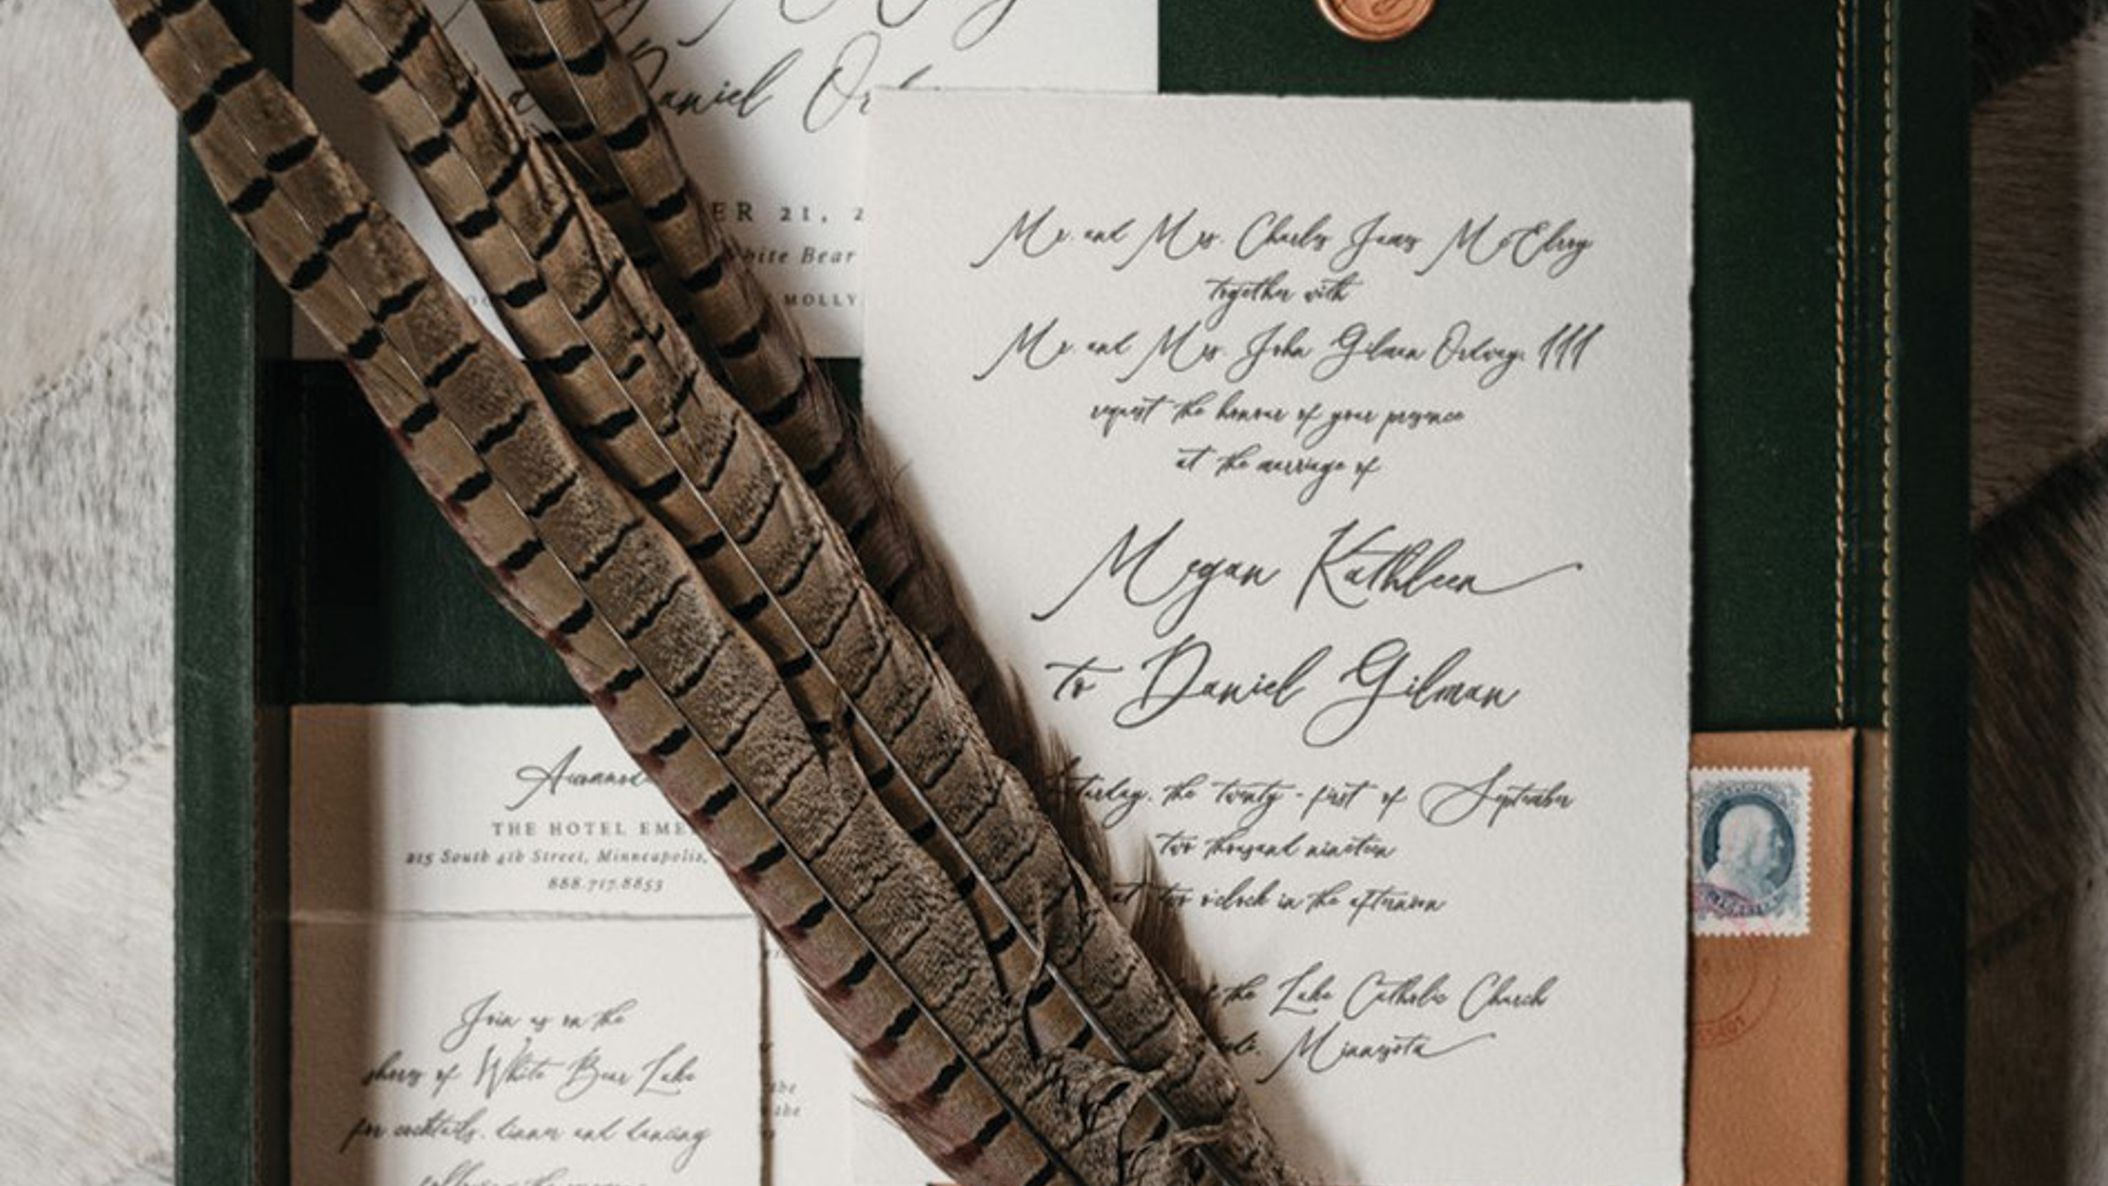 Daniel
21,
White Bear
MOLLY
Mr. and Mrs. Charles James McElroy
together with
Mr. and Mrs. John Gilman Ordway, III
request the honour of your presence
at the marriage of
Megan Kathleen
to Daniel Gilman
Saturday, the twenty-first of September
two thousand nineteen
at two o'clock in the afternoon
the Lake Catholic Church
Minnesota
THE HOTEL
215 South 4th Street, Minneapolis,
888.717.8853
Join us on the
shores of White Bear Lake
for cocktails, dinner and dancing
the
the